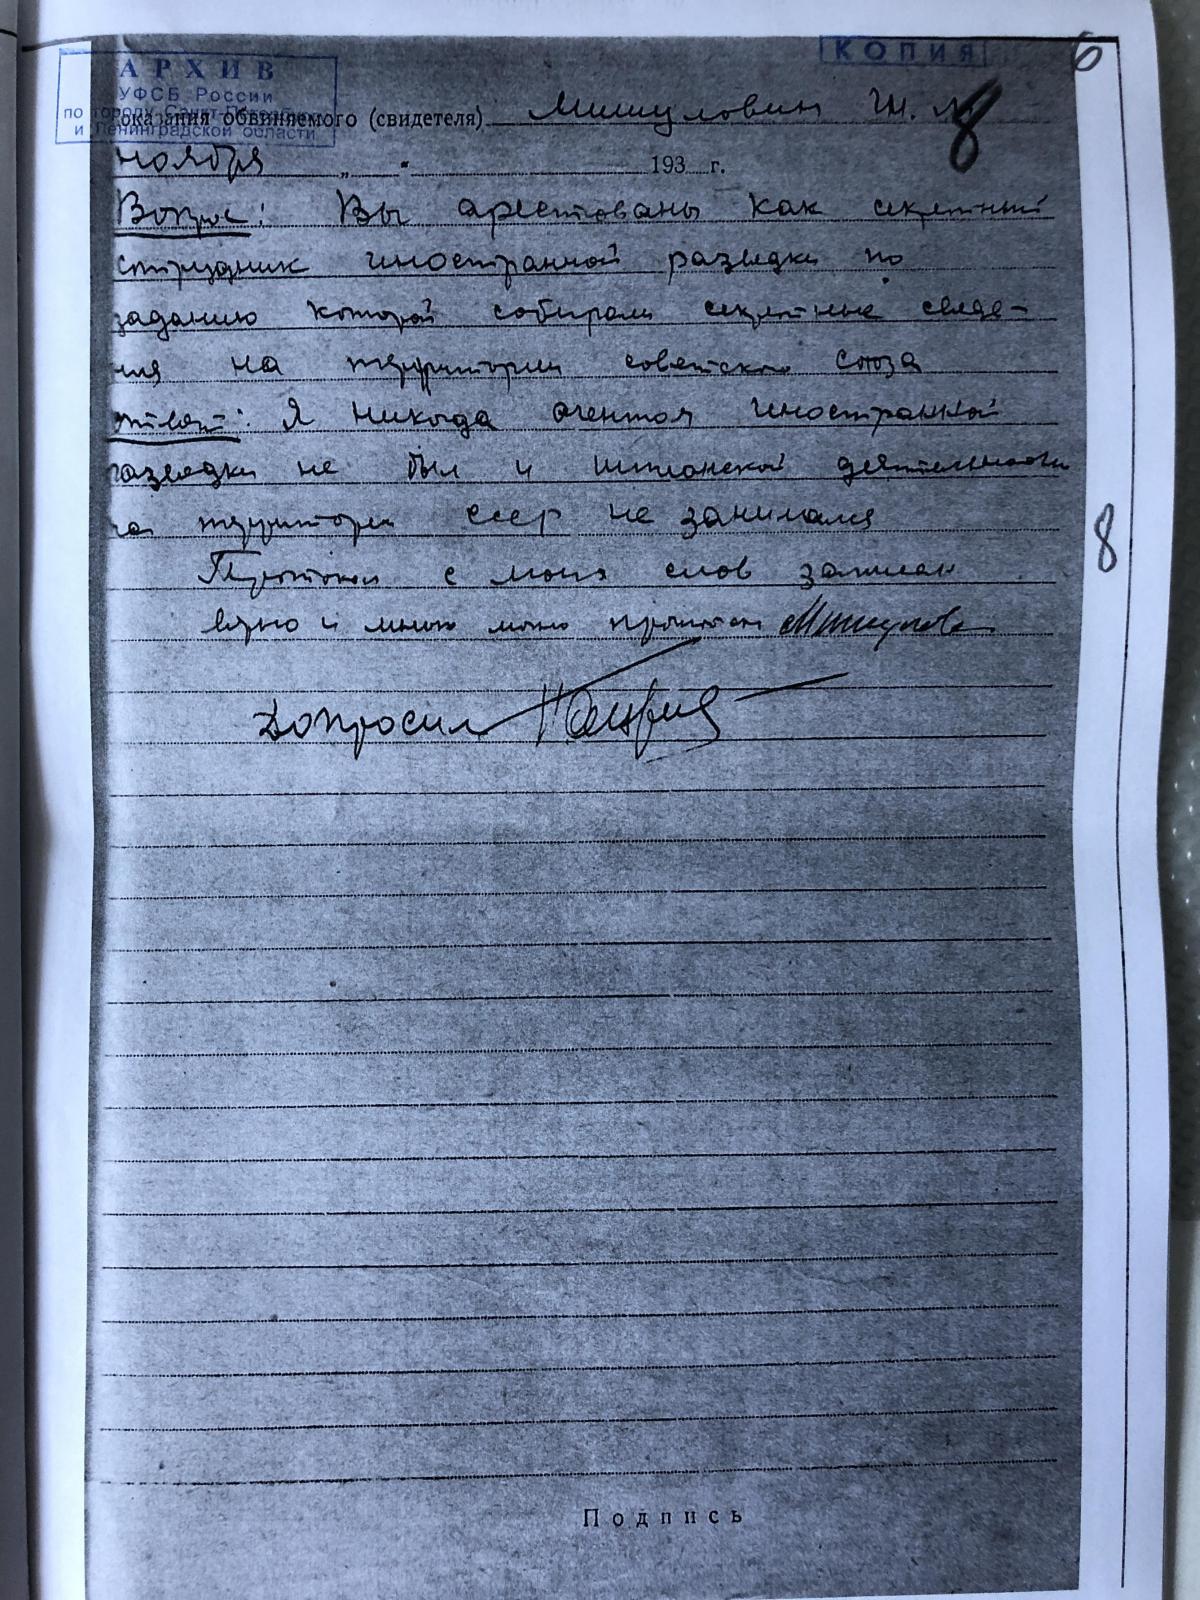 КОПИЯ
6
АРХИВ
УФСБ России
по городу Санкт-Петербургу
и Ленинградской области
оказания обвиняемого (свидетеля) Мишулович Ш.
8
ноября „ " 193 г.
Вопрос: Вы арестованы как секретный
сотрудник иностранной разведки по
заданию которой собирали секретные сведе-
ния на территории советского союза
твет: Я никогда агентом иностранной
разведки не был и шпионской деятельности
на территории ссср не занимался
8
Протокол с моих слов записан
верно и мною лично прочитан
Допросил
Подпись